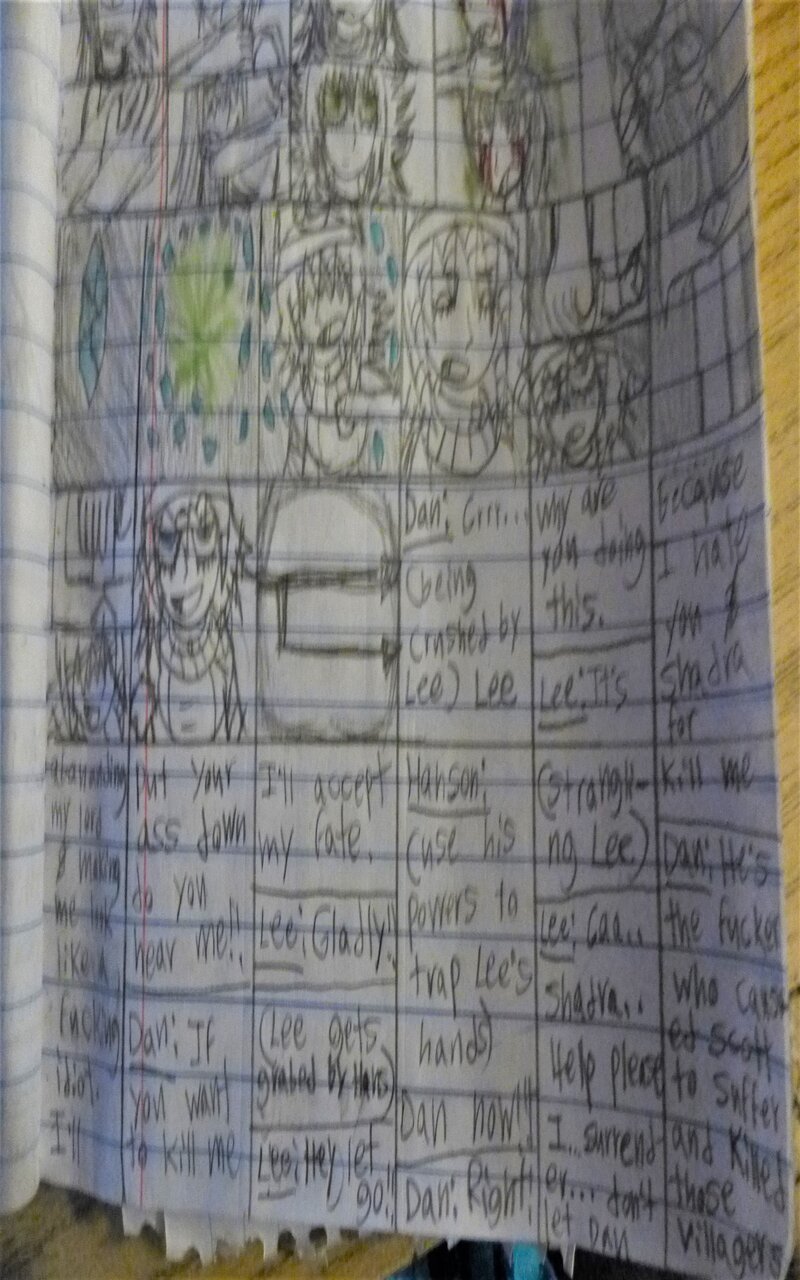 Dan: Grrr...
(being
crushed by
Lee) Lee
why are
you doing
this.
Lee: It's
because
I hate
you &
shadra
for
my lord
& making
me look
like a
fucking
idiot.
I'll
put your
ass down
do you
hear me!!
Dan: If
you want
to kill me
I'll accept
my fate.
Lee: Gladly!
(Lee gets
grabed by Hans)
Lee: Hey let
go!!
Hanson:
(use his
powers to
trap Lee's
hands)
Dan now!!
Dan: Right!
(strangli-
ng Lee)
Lee: Gaa..
shadra..
Help please
I...surrend
er... don't
let Dan
Kill me
Dan: He's
the fucker
who caus-
ed Scott
to suffer
and killed
those
villagers